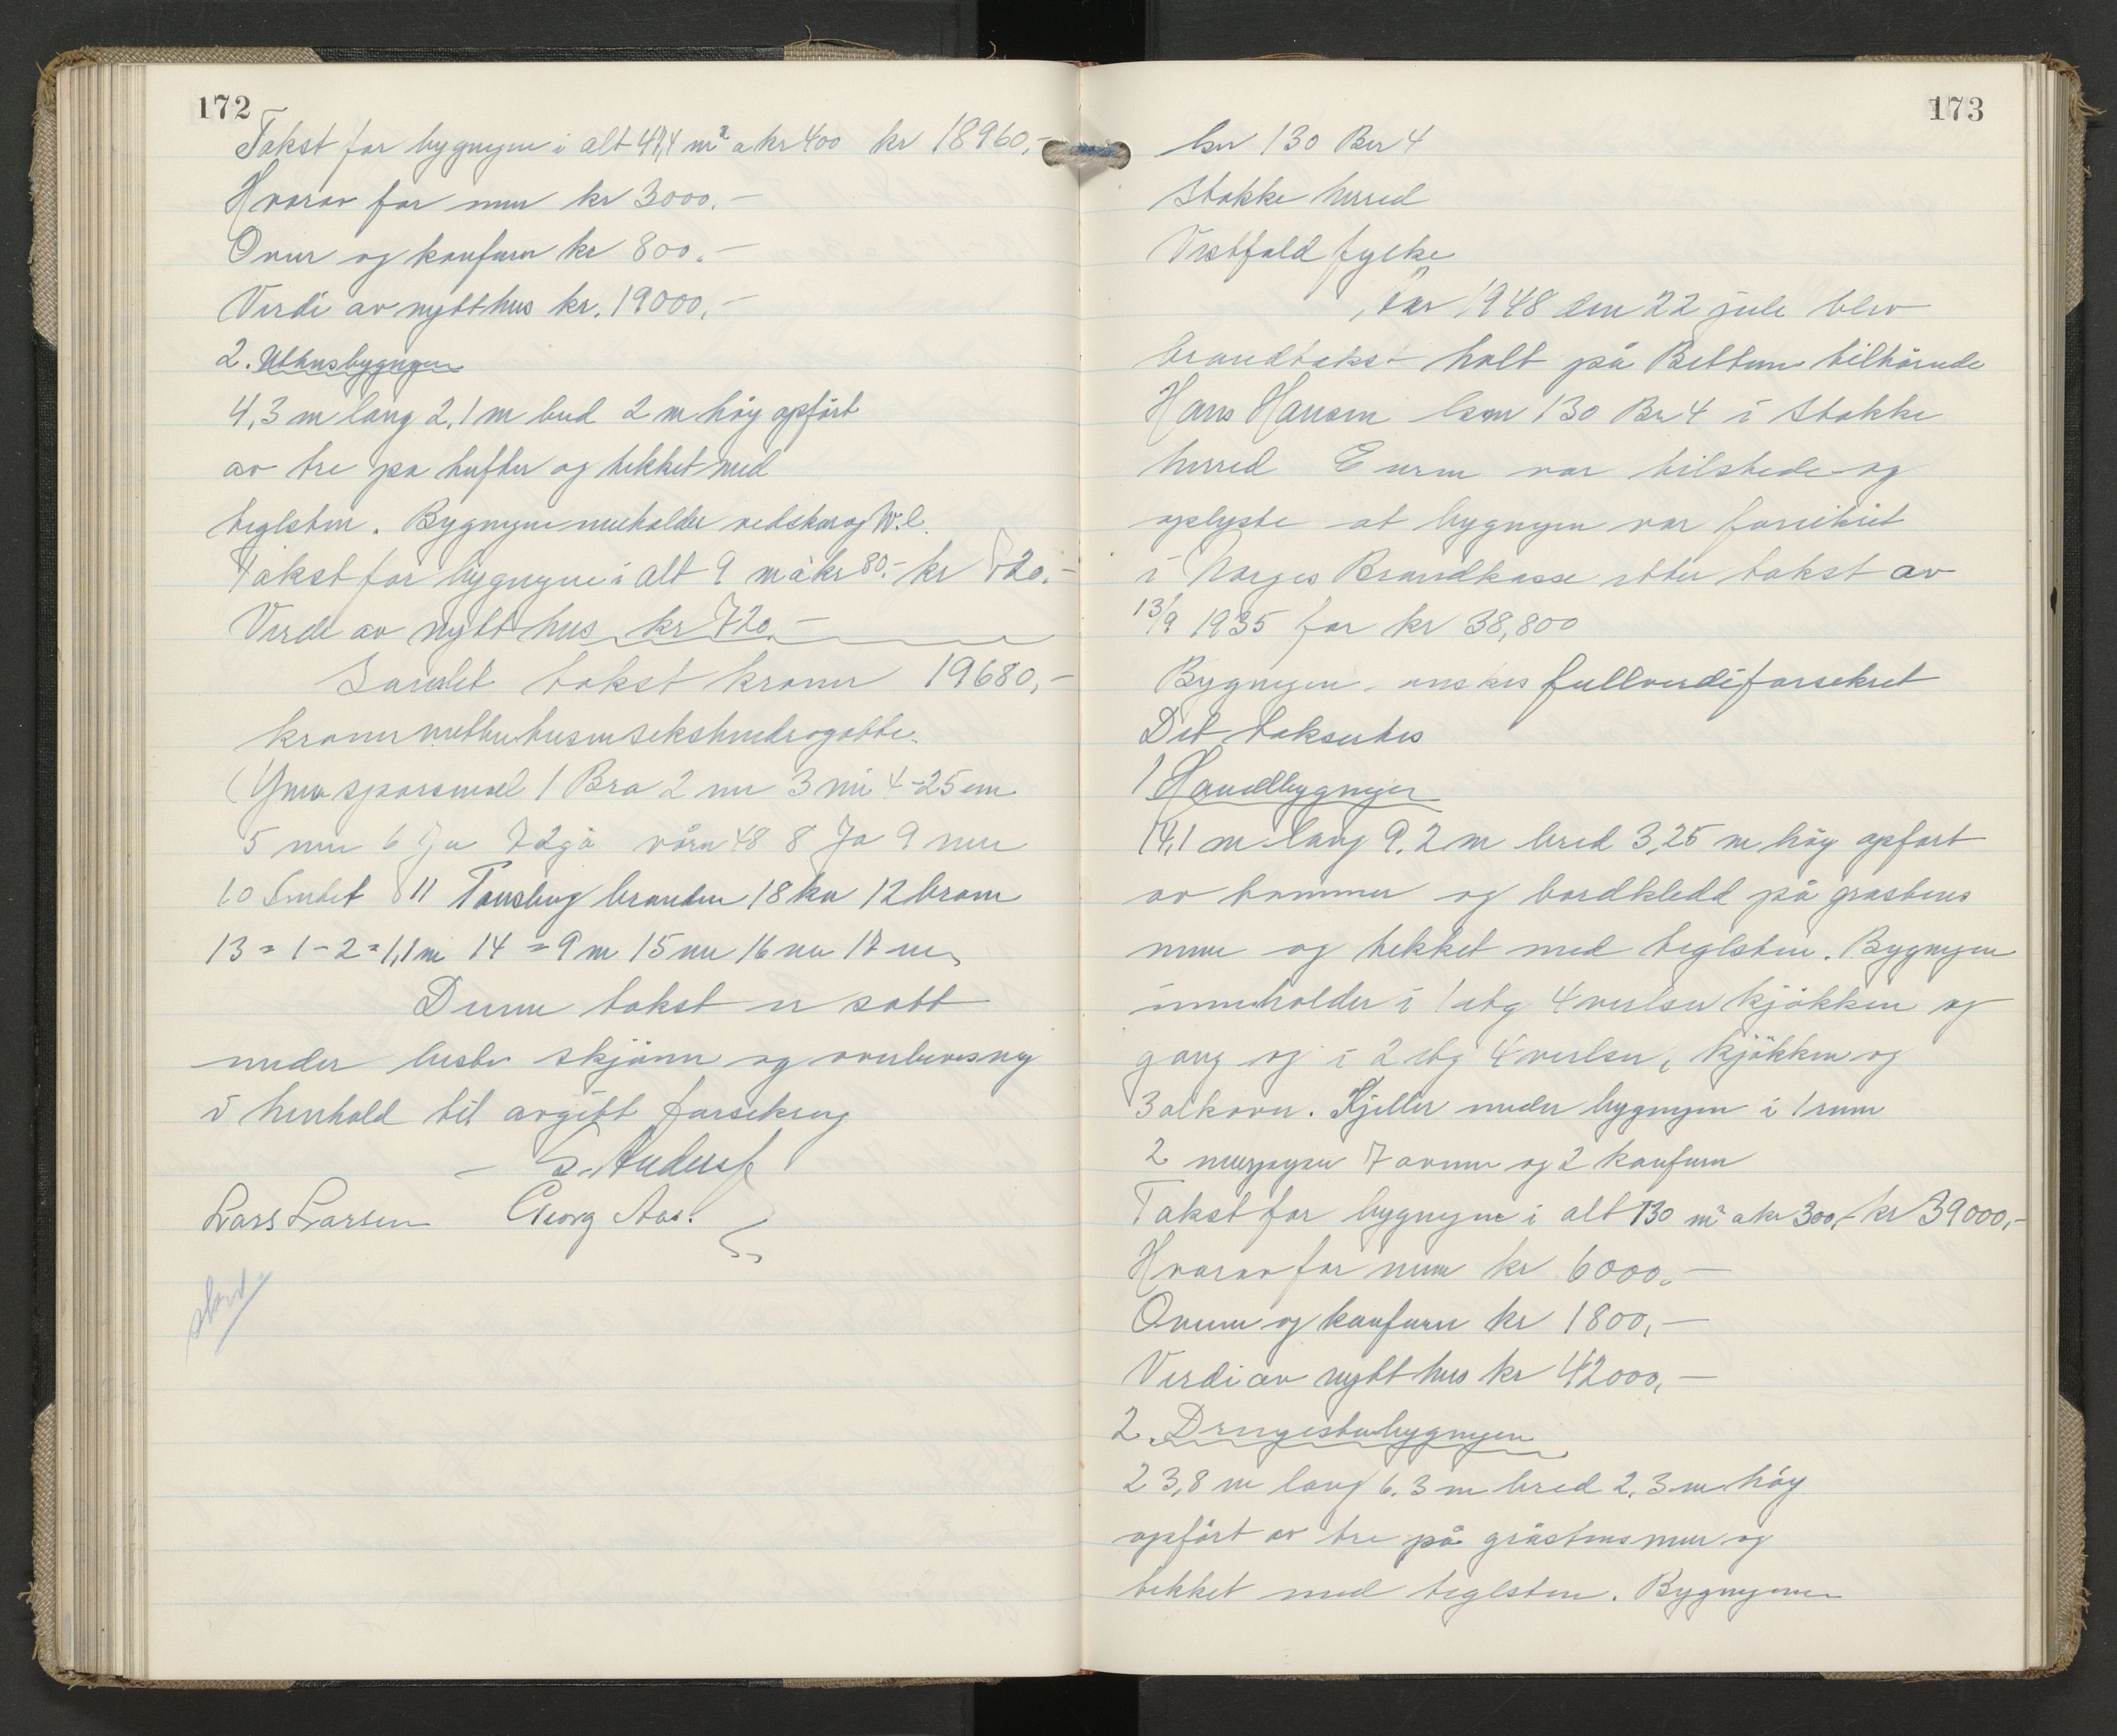 172
Takst for bygnygne i alt 47,4 m² a kr 400 kr 18960,-
Hvorav for mur kr 3000.-
Ovner og komfurer kr 800.-
Verdi av nytt hus kr. 19000.-
2. Uthusbygnigen
4,3 m lang 2,1 m bred 2 m høy opført
av tre på hefter og tekket med
teglsten. Bygnygne inneholder vedskur og W.C.
Takst for bygnygne i alt 9 m à kr 80.- kr 720.-
Verdi av nytt hus kr 720.-
Samlet takst kroner 19680,-
kroner nittentusen sekshundreogotti.
1 Bra 2 nei 3 nei 4 - 25 cm
5 nei 6 Ja 7 våren 48 8 Ja 9 nei
10 Landet 11 Tønsberg branden 18 km 12 brønn
13 = 1 - 2 = 1,1 m 14 = 9 m 15 nei 16 nei 17 nei
Denne takst er satt
under beste skjønn og overbevisnig
i henhold til avgitt forsikring
Lars Larsen Georg Aas.
173
Gnr 130 Bnr 4
Stokke herred
Vestfold fylke
År 1948 den 22 juli blev
brandtakst holt på Bettum tilhørende
Hans Hansen Gnr 130 Br 4 i Stokke
herred Eieren var tilstede og
oplyste at bygnygen var forsikret
i Norges Brandkasse etter takst av
13/9 1935 for kr 38,800
Bygnygen ønskes fullverdiforsekret
Det taksertes
1 Hovedbygnigen
14,1 m lang 9.2 m bred 3,25 m høy opført
av tømmer og bordkledd på gråstens
mur og tekket med teglsten. Bygnygen
inneholder i 1 etg 4 verlser kjøkken og
gang og i 2 etg 4 verlser, kjøkken og
3 alkover. Kjeller under bygnygen i 1 rum
2 murpiper 7 ovner og 2 komfurer
Takst for bygnygne i alt 130 m² a kr 300,- kr 39000,-
Hvorav for mur kr 6000.-
Ovner og komfurer kr 1800,-
Verdi av nytt hus kr 42000,-
2. Drengestubygnygen
23,8 m lang 6.3 m bred 2.3 m høy
opført av tre på gråstensmur og
tekket med teglsten. Bygnygnen